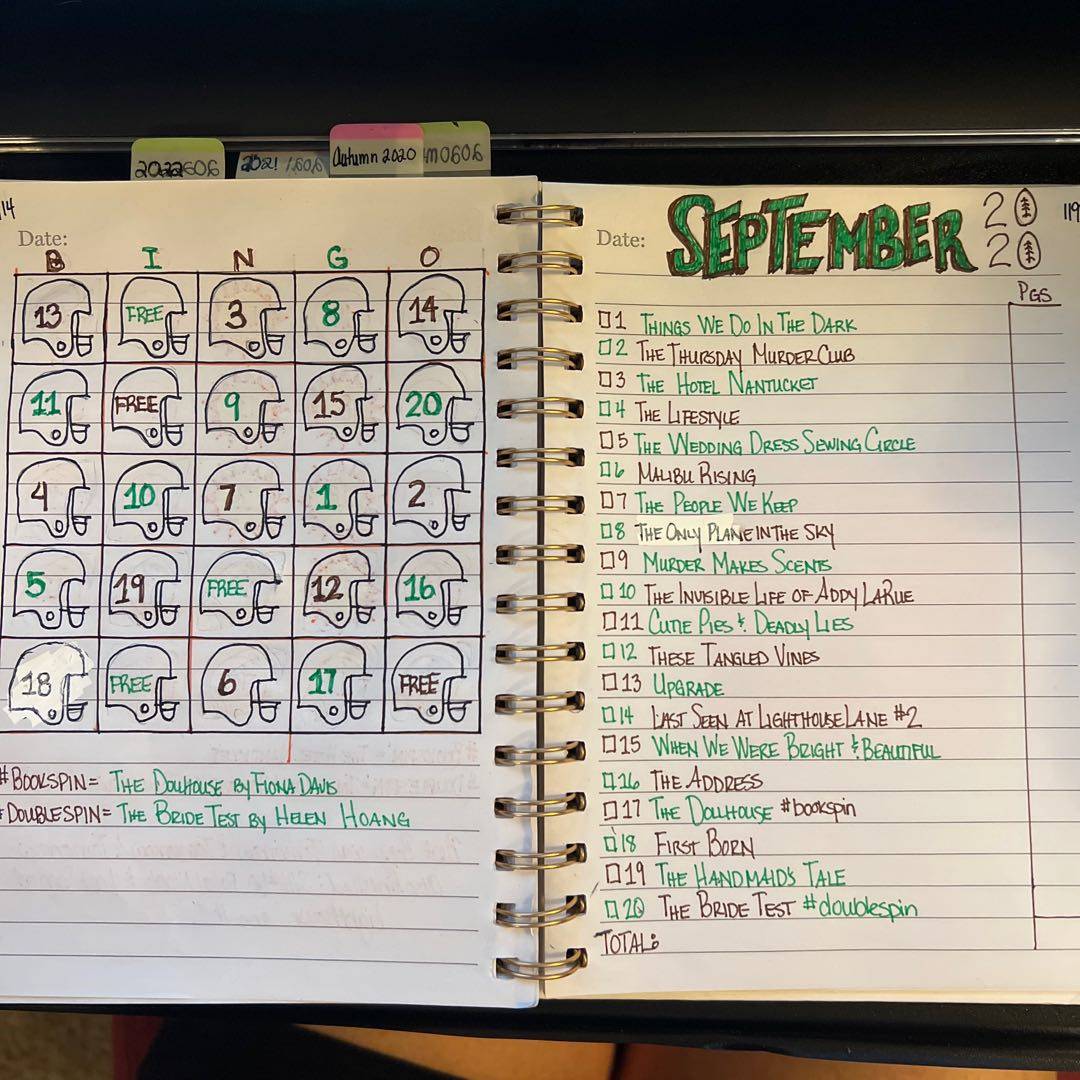 2022
2021
Autumn 2020
14
Date:
B I N G O
13 FREE 3 8 14
11 FREE 9 15 20
4 10 7 1 2
5 19 FREE 12 16
18 FREE 6 17 FREE
#BOOKSPIN= THE DOLLHOUSE BY FIONA DAVIS
#DOUBLESPIN= THE BRIDE TEST BY HELEN HOANG
Date:
SEPTEMBER
20
20
119
PGS
1 THINGS WE DO IN THE DARK
2 THE THURSDAY MURDER CLUB
3 THE HOTEL NANTUCKET
4 THE LIFESTYLE
5 THE WEDDING DRESS SEWING CIRCLE
6 MALIBU RISING
7 THE PEOPLE WE KEEP
8 THE ONLY PLANE IN THE SKY
9 MURDER MAKES SCENTS
10 THE INVISIBLE LIFE OF ADDY LARUE
11 CUTIE PIES & DEADLY LIES
12 THESE TANGLED VINES
13 UPGRADE
14 LAST SEEN AT LIGHTHOUSE LANE #2
15 WHEN WE WERE BRIGHT & BEAUTIFUL
16 THE ADDRESS
17 THE DOLLHOUSE #bookspin
18 FIRST BORN
19 THE HANDMAID'S TALE
20 THE BRIDE TEST #doublespin
TOTAL: